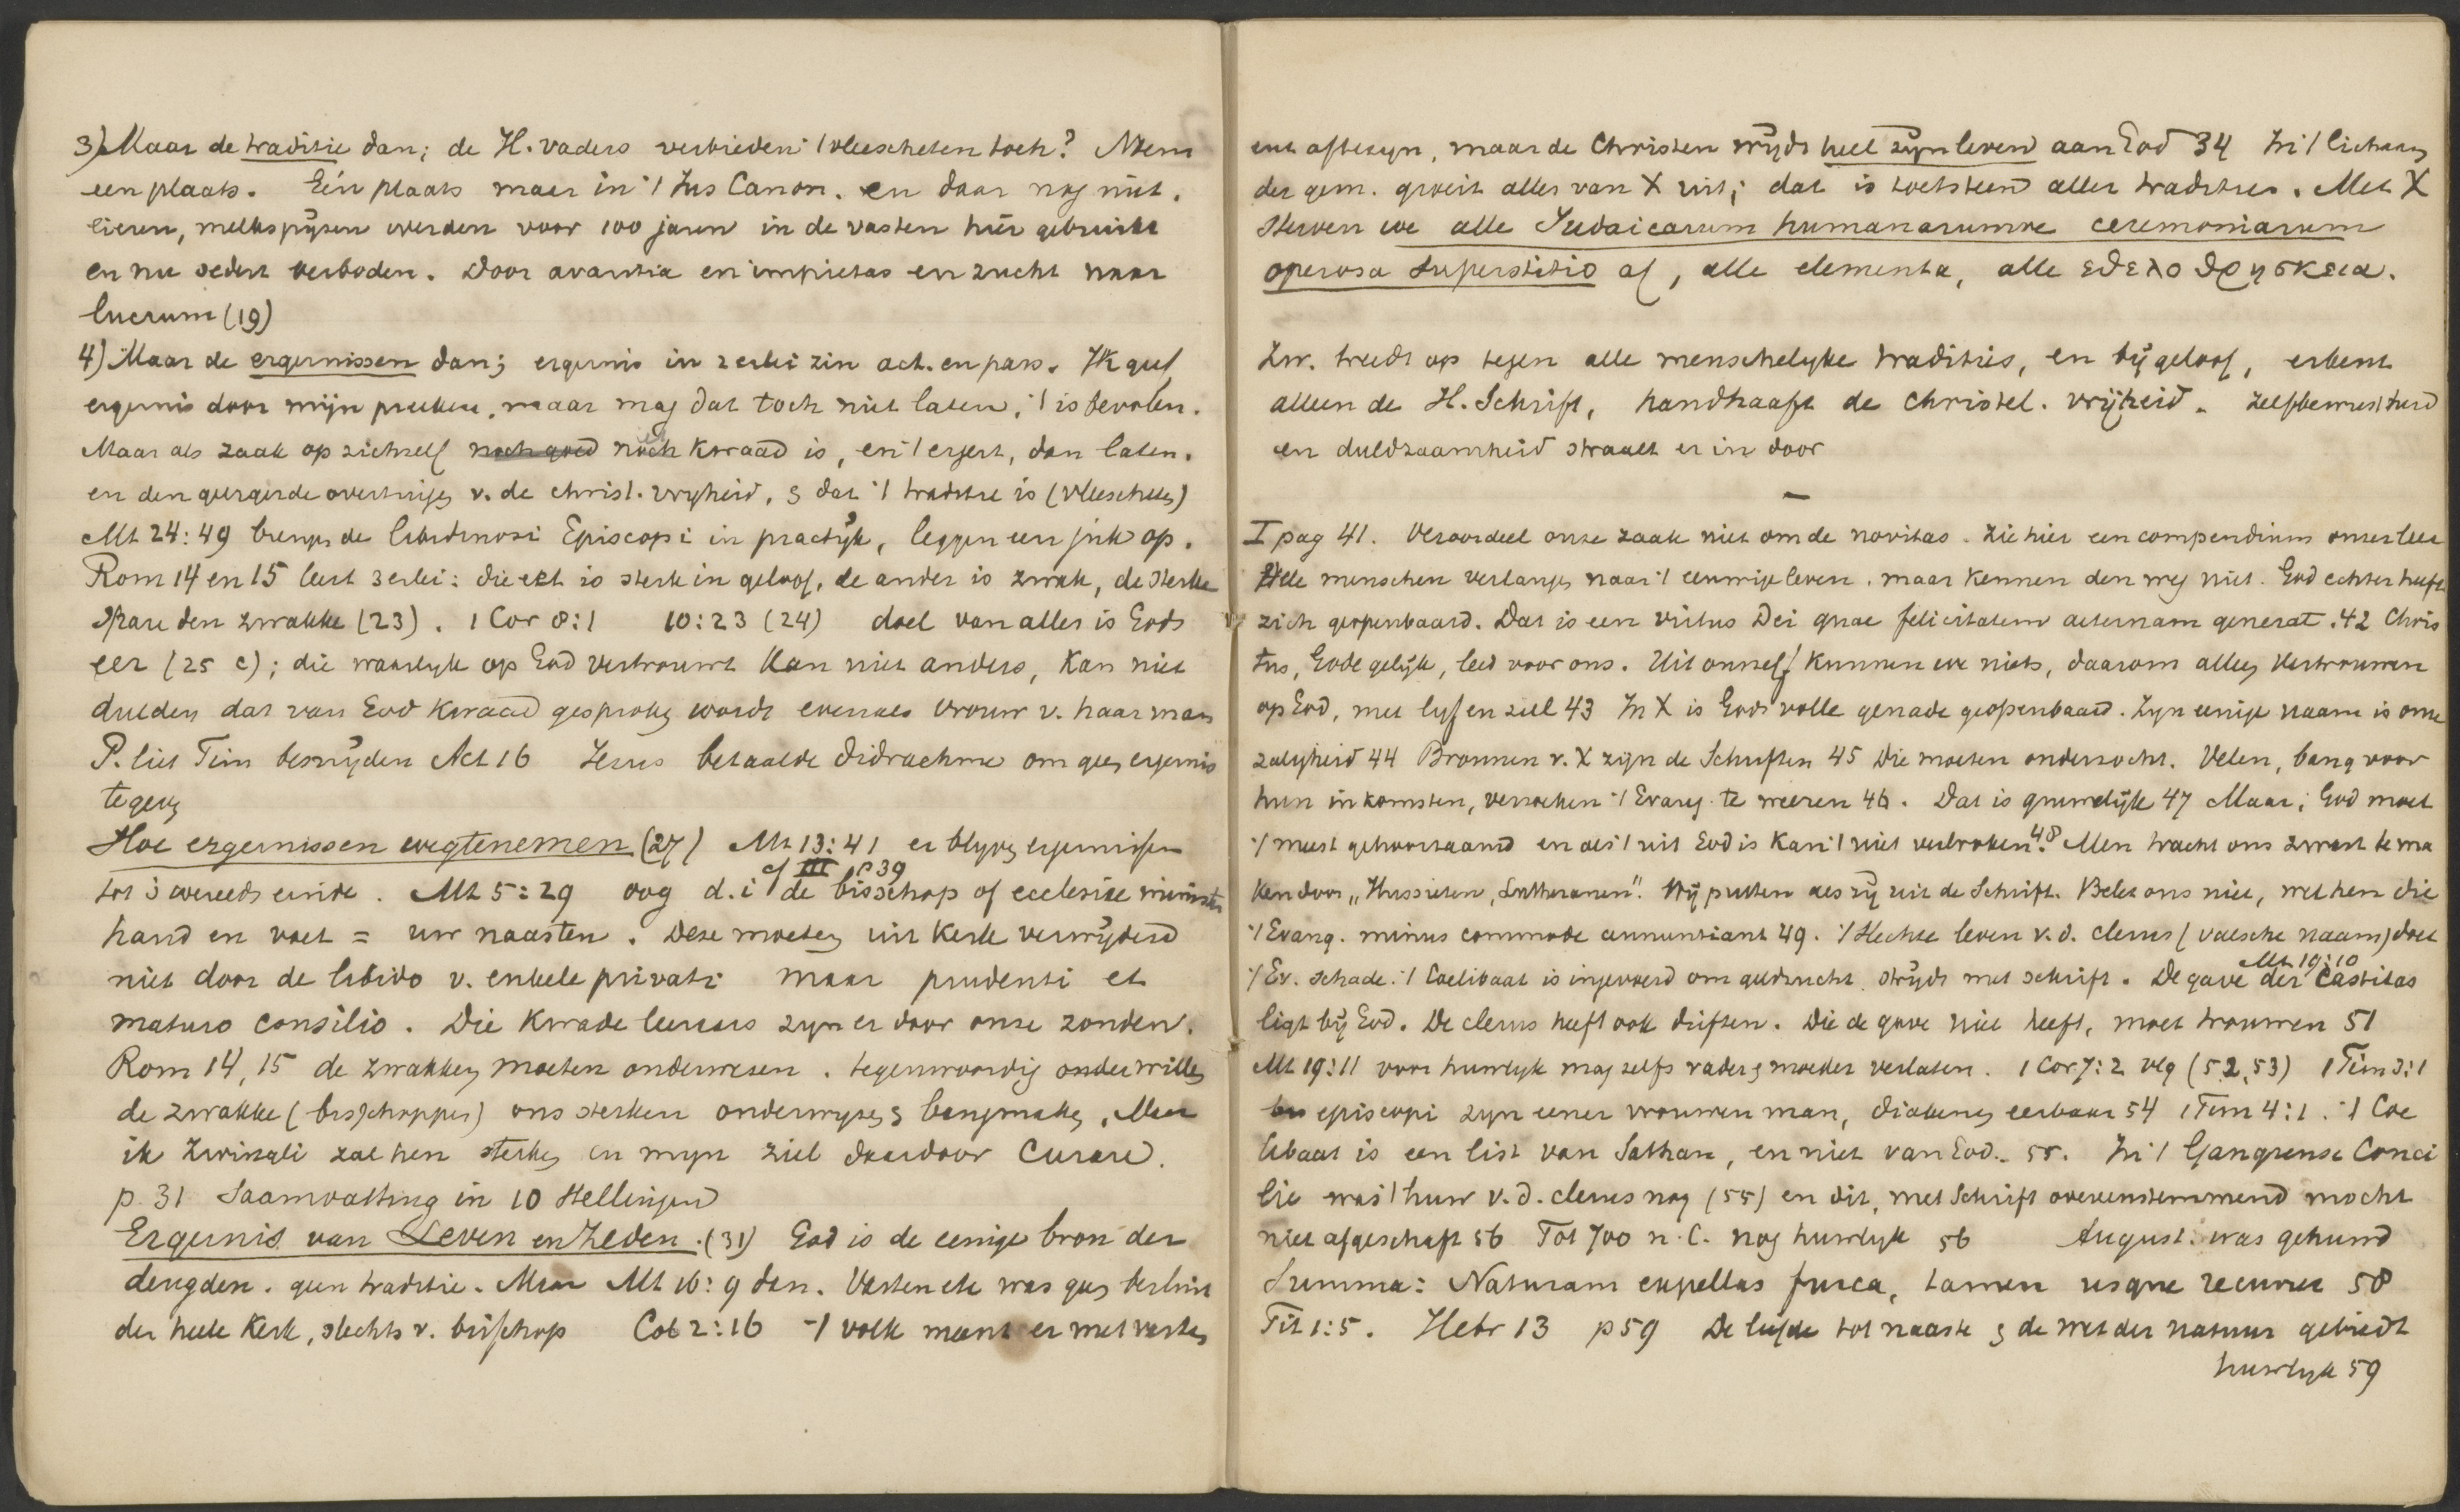 3) Maar de traditie dan; de H. vaders verbieden 't vleescheten toch? Noem
een plaats. Eén plaats maar in 't Jus Canon. en daar nog niet.
eieren, melkspijzen werden voor 100 jaren in de vasten hier gebruikt
en nu sedert verboden. Door avaritia en impietas en zucht naar
lucrum (19)
4) Maar de ergernissen dan; ergernis in 2erlei zin act. en pass. Ik geef
ergernis door mijn preeken, maar mag dat toch niet laten, 't is bevolen.
Maar als zaak op zichzelf noch goed noch kwaad is, en 't ergert, dan laten.
en den geergerde overtuigen v. de christ. vryheid, & dat 't traditie is (vleescheten)
Mt 24:49 brengen de libidinosi Episcopi in practijk, leggen een juk op.
Rom 14 en 15 leert 3erlei: die eet is sterk in geloof, de ander is zwak, de sterke
spare den zwakke (23). 1 Cor 8:1 10:23 (24) doel van alles is Gods
eer (25 c); die waarlyk op God vertrouwt kan niet anders, kan niet
dulden dat van God kwaad gesproken wordt evenals vrouw v. haar man
P. liet Tim besnijden Act 16 Jezus betaalde didrachme om geen ergernis
te geven
Hoe ergernissen wegtenemen (27) Mt 13:41 er blyven ergernissen
cf III p 39
tot 's werelds einde. Mt 5:29 oog d.i de bisschop of ecclesiae minister
hand en voet = uw naasten. Deze moeten uit kerk verwijderd
niet door de libido v. enkele privati maar prudenti et
maturo consilio. Die kwade leeraars zyn er door onze zonden.
Rom 14, 15 de zwakken moeten onderwezen. tegenwoordig willen
de zwakke (bisschoppen) ons sterken onderwyzen & bangmaken. Maar
ik Zwingli zal hen sterken en myn ziel daardoor curare.
p. 31 Saamvatting in 10 stellingen
Ergernis van Leven en Zeden. (31) God is de eenige bron der
deugden. geen traditie. Maar Mt 16:9 dan. Vasten etc was geen besluit
der heele Kerk, slechts v. bisschop Col 2:16 't volk meent er met vasten
ent aftezyn, maar de Christen wijdt heel zijn leven aan God 34 In 't lichaam
der gem. groeit alles van X uit; dat is toetssteen aller tradities. Met X
sterven we alle Judaicarum humanarumve ceremoniarum
operosa superstitio af, alle elementa, alle εθελοθρησκεια.
Zw. treedt op tegen alle menschelyke tradities, en bijgeloof, erkent
alleen de H. Schrift, handhaaft de christel. vrijheid. Zelfbewustheid
en duldzaamheid straalt er in door
—
I pag 41. Veroordeel onze zaak niet om de novitas. Zie hier een compendium onzer leer
Alle menschen verlangen naar 't eeuwige leven, maar kennen den weg niet. God echter heeft
zich geopenbaard. Dat is een virtus Dei quae felicitatem aeternam generat. 42 Chris
tus, Gode gelijk, leed voor ons. Uit onszelf kunnen we niets, daarom alleen vertrouwen
op God, met lyf en ziel 43 In X is Gods volle genade geopenbaard. Zyn eenige naam is onze
zaligheid 44 Bronnen v. X zijn de Schriften 45 Die moeten onderzocht. Velen, bang voor
hun inkomsten, verzoeken 't Evang. te weeren 46. Dat is gruwelijk 47 Maar; God moet
't meest gehoorzaamd en als 't uit God is kan 't niet verbroken 48. Men tracht ons zwart te ma
ken door „Hussieten, Lutheranen". Wij putten als zij uit de Schrift. Belet ons niet, wel hen die
't Evang. minus commode annuntiant 49. 't Slechte leven v.d. clerus (valsche naam) doet
Mt 19:10
't Ev. schade. 't Coelibaat is ingevoerd om geldzucht, strijdt met schrift. De gave der castitas
ligt bij God. De clerus heeft ook driften. Die de gave niet heeft, moet trouwen 51
Mt 19:11 voor huwlyk mag zelfs vader & moeder verlaten. 1 Cor 7:2 vlg (52,53) 1 Tim 3:1
episcopi zyn eener vrouwen man, diakens eerbaar 54 1 Tim 4:1. 't Coe
libaat is een list van Sathan, en niet van God. 55. In 't Gangrense Conci
lie was 't huw v.d. clerus nog (55) en dit, met Schrift overeenstemmend mocht
niet afgeschaft 56 Tot 700 n.C. nog huwlyk 56 August. was gehuwd
Summa: Naturam expellas furca, tamen usque recurret 58
Tit 1:5. Hebr 13 p 59 De liefde tot naaste & de wet der natuur gebiedt
huwlyk 59